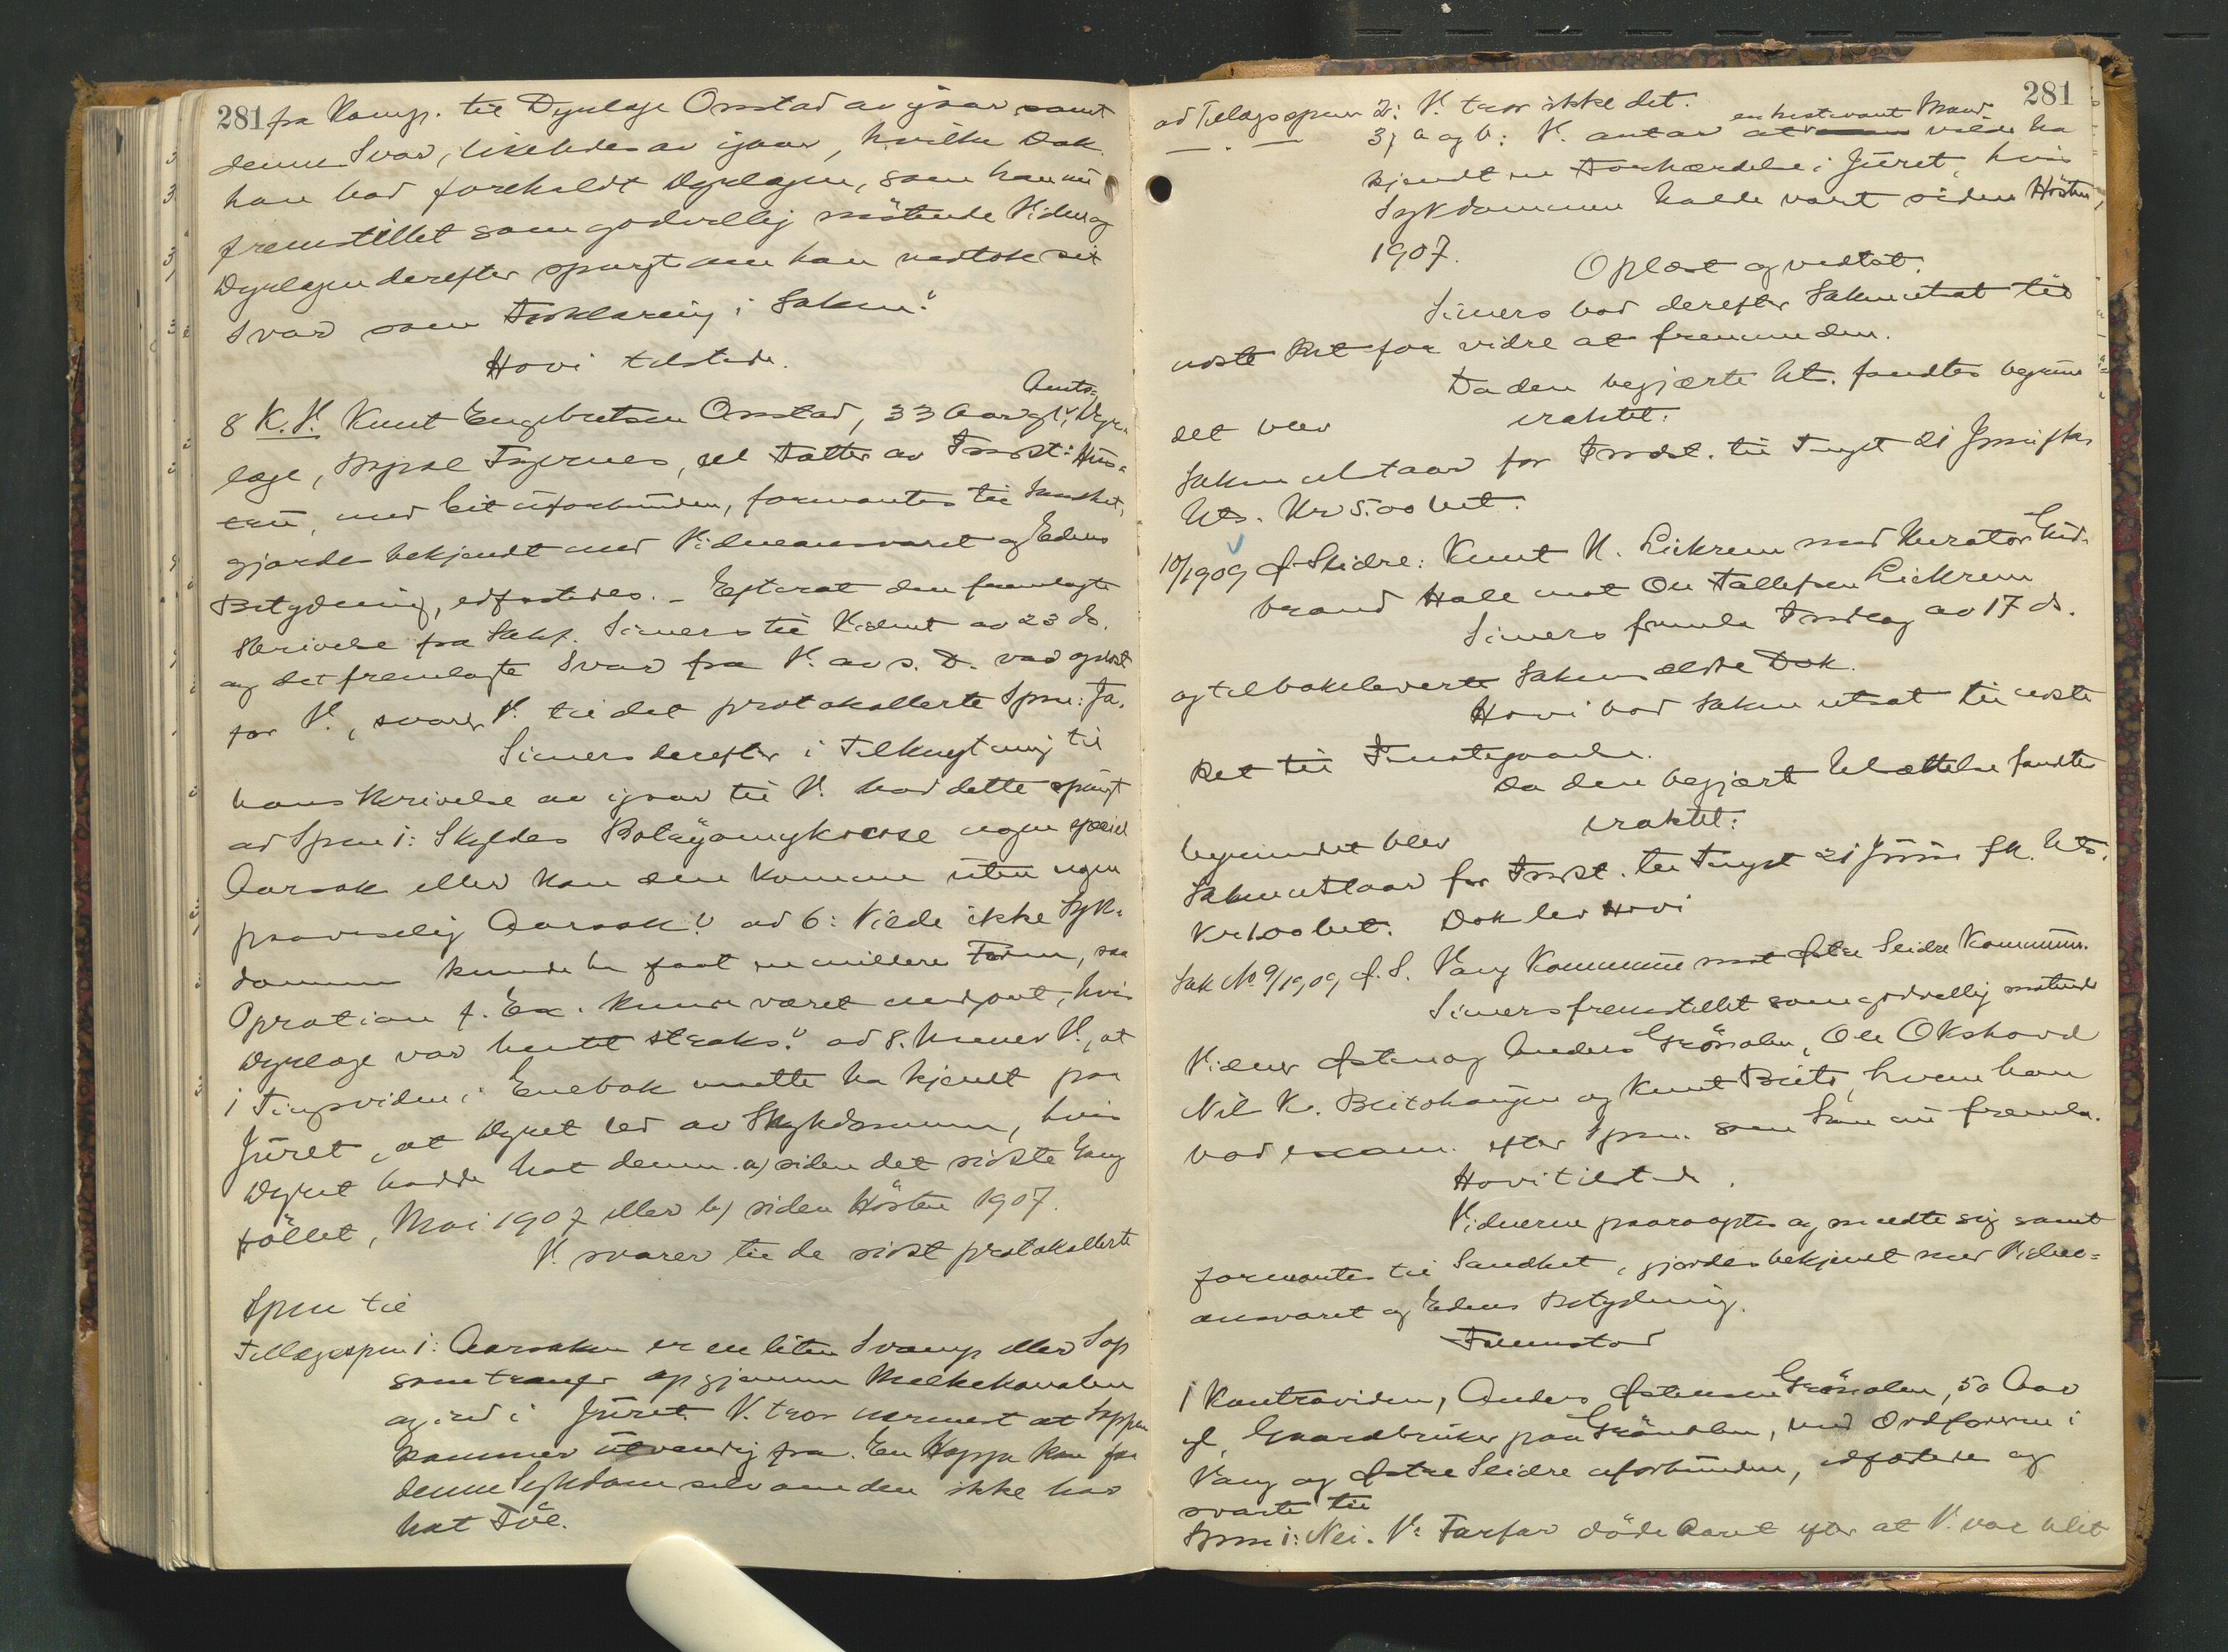 281 fra Komp. til Dyrlæge Onstad av igaar samt
dennes Svar, likeledes av igaar, hvilke Dok.
han bad foreholdt Dyrlægen, som han nu
fremstillet som godvillig mötende Vidne og
Dyrlægen derefter spurgt om han vedtok sit
Svar som Forklaring i Saken."
Hovi tilstede.
Amts-
8 K.V. Knut Engebretsen Onstad, 33 Aar gl., Dyr-
læge, Bopæl Fagernes, en Fætter av Indst: Hus-
tru, med Cit uforbunden, formantes til Sandhet,
gjordes bekjendt med Vidneansvaret og Edens
Betydning, edfæstedes. - Efterat den fremlagte
Skrivelse fra Sakf. Simers til Vidnet av 23 ds.
og det fremlagte Svar fra V. av s. D. var oplæst
for V., svarer V. til det protokollerte Spm: Ja.
Simers derefter i Tilknytning til
hans Skrivelse av igaar til V. bad dette spurgt
ad Spm 1: Skyldes Botryomykose nogen speciel
Aarsak eller kan den komme uten nogen
paaviselig Aarsak? ad 6: Vilde ikke Syk-
dommen kunde ha faat en mildere Form, saa
Opration f. Ex. kunde været undgaat, hvis
Dyrlæge var hentet straks? ad 8. Mener V., at
1 Tingsvidne i Enebak maatte ha kjendt paa
Jüret, at Dyret led av Sykdommen, hvis
Dyret hadde hat denne a) siden det sidste Gang
föllet, Mai 1907 eller b) siden Hösten 1907.
V. svarer til de sidst protokollerte
Spm til
Tillægsspm 1: Aarsaken er en liten Svamp eller Sop
som trænger op gjennem Melkekanalen
og ind i Jüret. V. tror nærmest at Soppen
kommer utvendig fra. En Hoppe kan faa
denne Sykdom selv om den ikke har
hat Föl.
281
ad Tillægsspm 2: V. tror ikke det.
en hestevant Mand
3, a og b: V. antar at vilde ha
kjendt en Forhærdelse i Jüret, hvis
Sykdommen hadde vart siden Hösten
1907.
Oplæst og vedtat.
Simers bad derefter Saken utsat til
næste Ret for vidre at fremme den.
Da den begjærte Uts. fandtes begrun
det blev eraktet:
Saken utstaar for Indst. til Tinget 21 Juni fk.
Uts. Kr 5.00 bet.
10/1909 Ø. Slidre: Knut K. Lickrem med Kurator Gud-
brand Hale mot Ole Tollefsen Lickrem
Simers fremla Indlæg av 17 ds.
og tilbakeleverte Sakens ældre Dok.
Hovi bad Saken utsat til næste
Ret til Imötegaaelse.
Da den begjært Utsættelse fandtes
begrundet blev eraktet:
Saken utstaar for Indst. til Tinget 21 Juni fk. Uts.
Kr 1.00 bet. Dok lev Hovi
Sak No 9/1909, Ø. S. Vang Kommune mot Østre Slidre Kommune.
Simers fremstillet som godvillig mötende
Vidner Østen og Anders Grönolen, Ole Okshovd
Nils K. Beitohaugen og Knut Beito, hvem han
bad exam. efter Spm. som han nu fremla.
Hovi tilstede.
Vidnerne paaroptes og meldte sig samt
formantes til Sandhet, gjordes bekjendt med Vidne-
ansvaret og Edens Betydning.
Fremstod
1 Kontravidne, Anders Østensen Grönolen, 50 Aar
gl., Gaardbruker paa Grönolen, med Ordförerne i
Vang og Østre Slidre uforbunden, edfæstedes og
svarte til
Spm 1: Nei. V:s Farfar döde Aaret efter at V. var blit